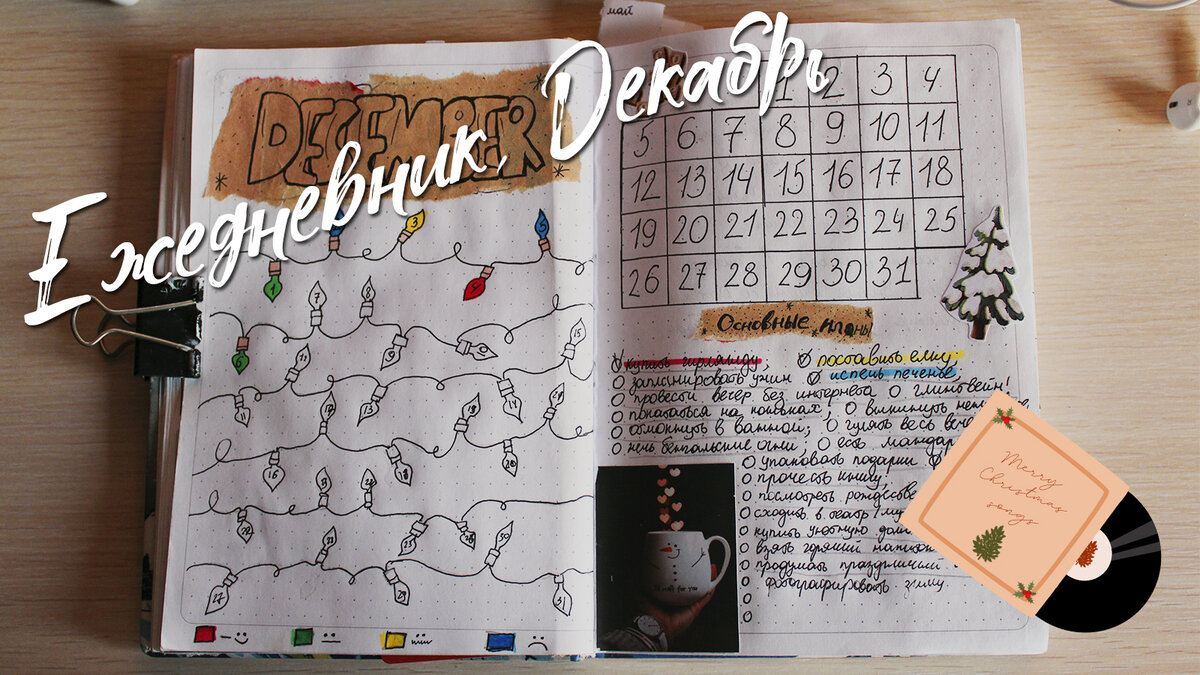 май
Ежедневник. Декабрь
DECEMBER
1 2 3 4
5 6 7 8 9 10 11
12 13 14 15 16 17 18
19 20 21 22 23 24 25
26 27 28 29 30 31
3
7 8 15
6 11 9
13 14
16 20
22 28 30
27 29 31
Основные планы
купить гирлянду, поставить елку
запланировать ужин испечь печенье
провести вечер без интернета глинтвейн!
покататься на коньках;
отмокнуть в ванной; гулять весь
бенгальские огни, есть
упаковать подарки
прочесть книгу
посмотреть
сходить в театр
купить уютную
взять горячий
продумать праздничный
фотографировать зиму.
for you
Merry
Christmas
songs